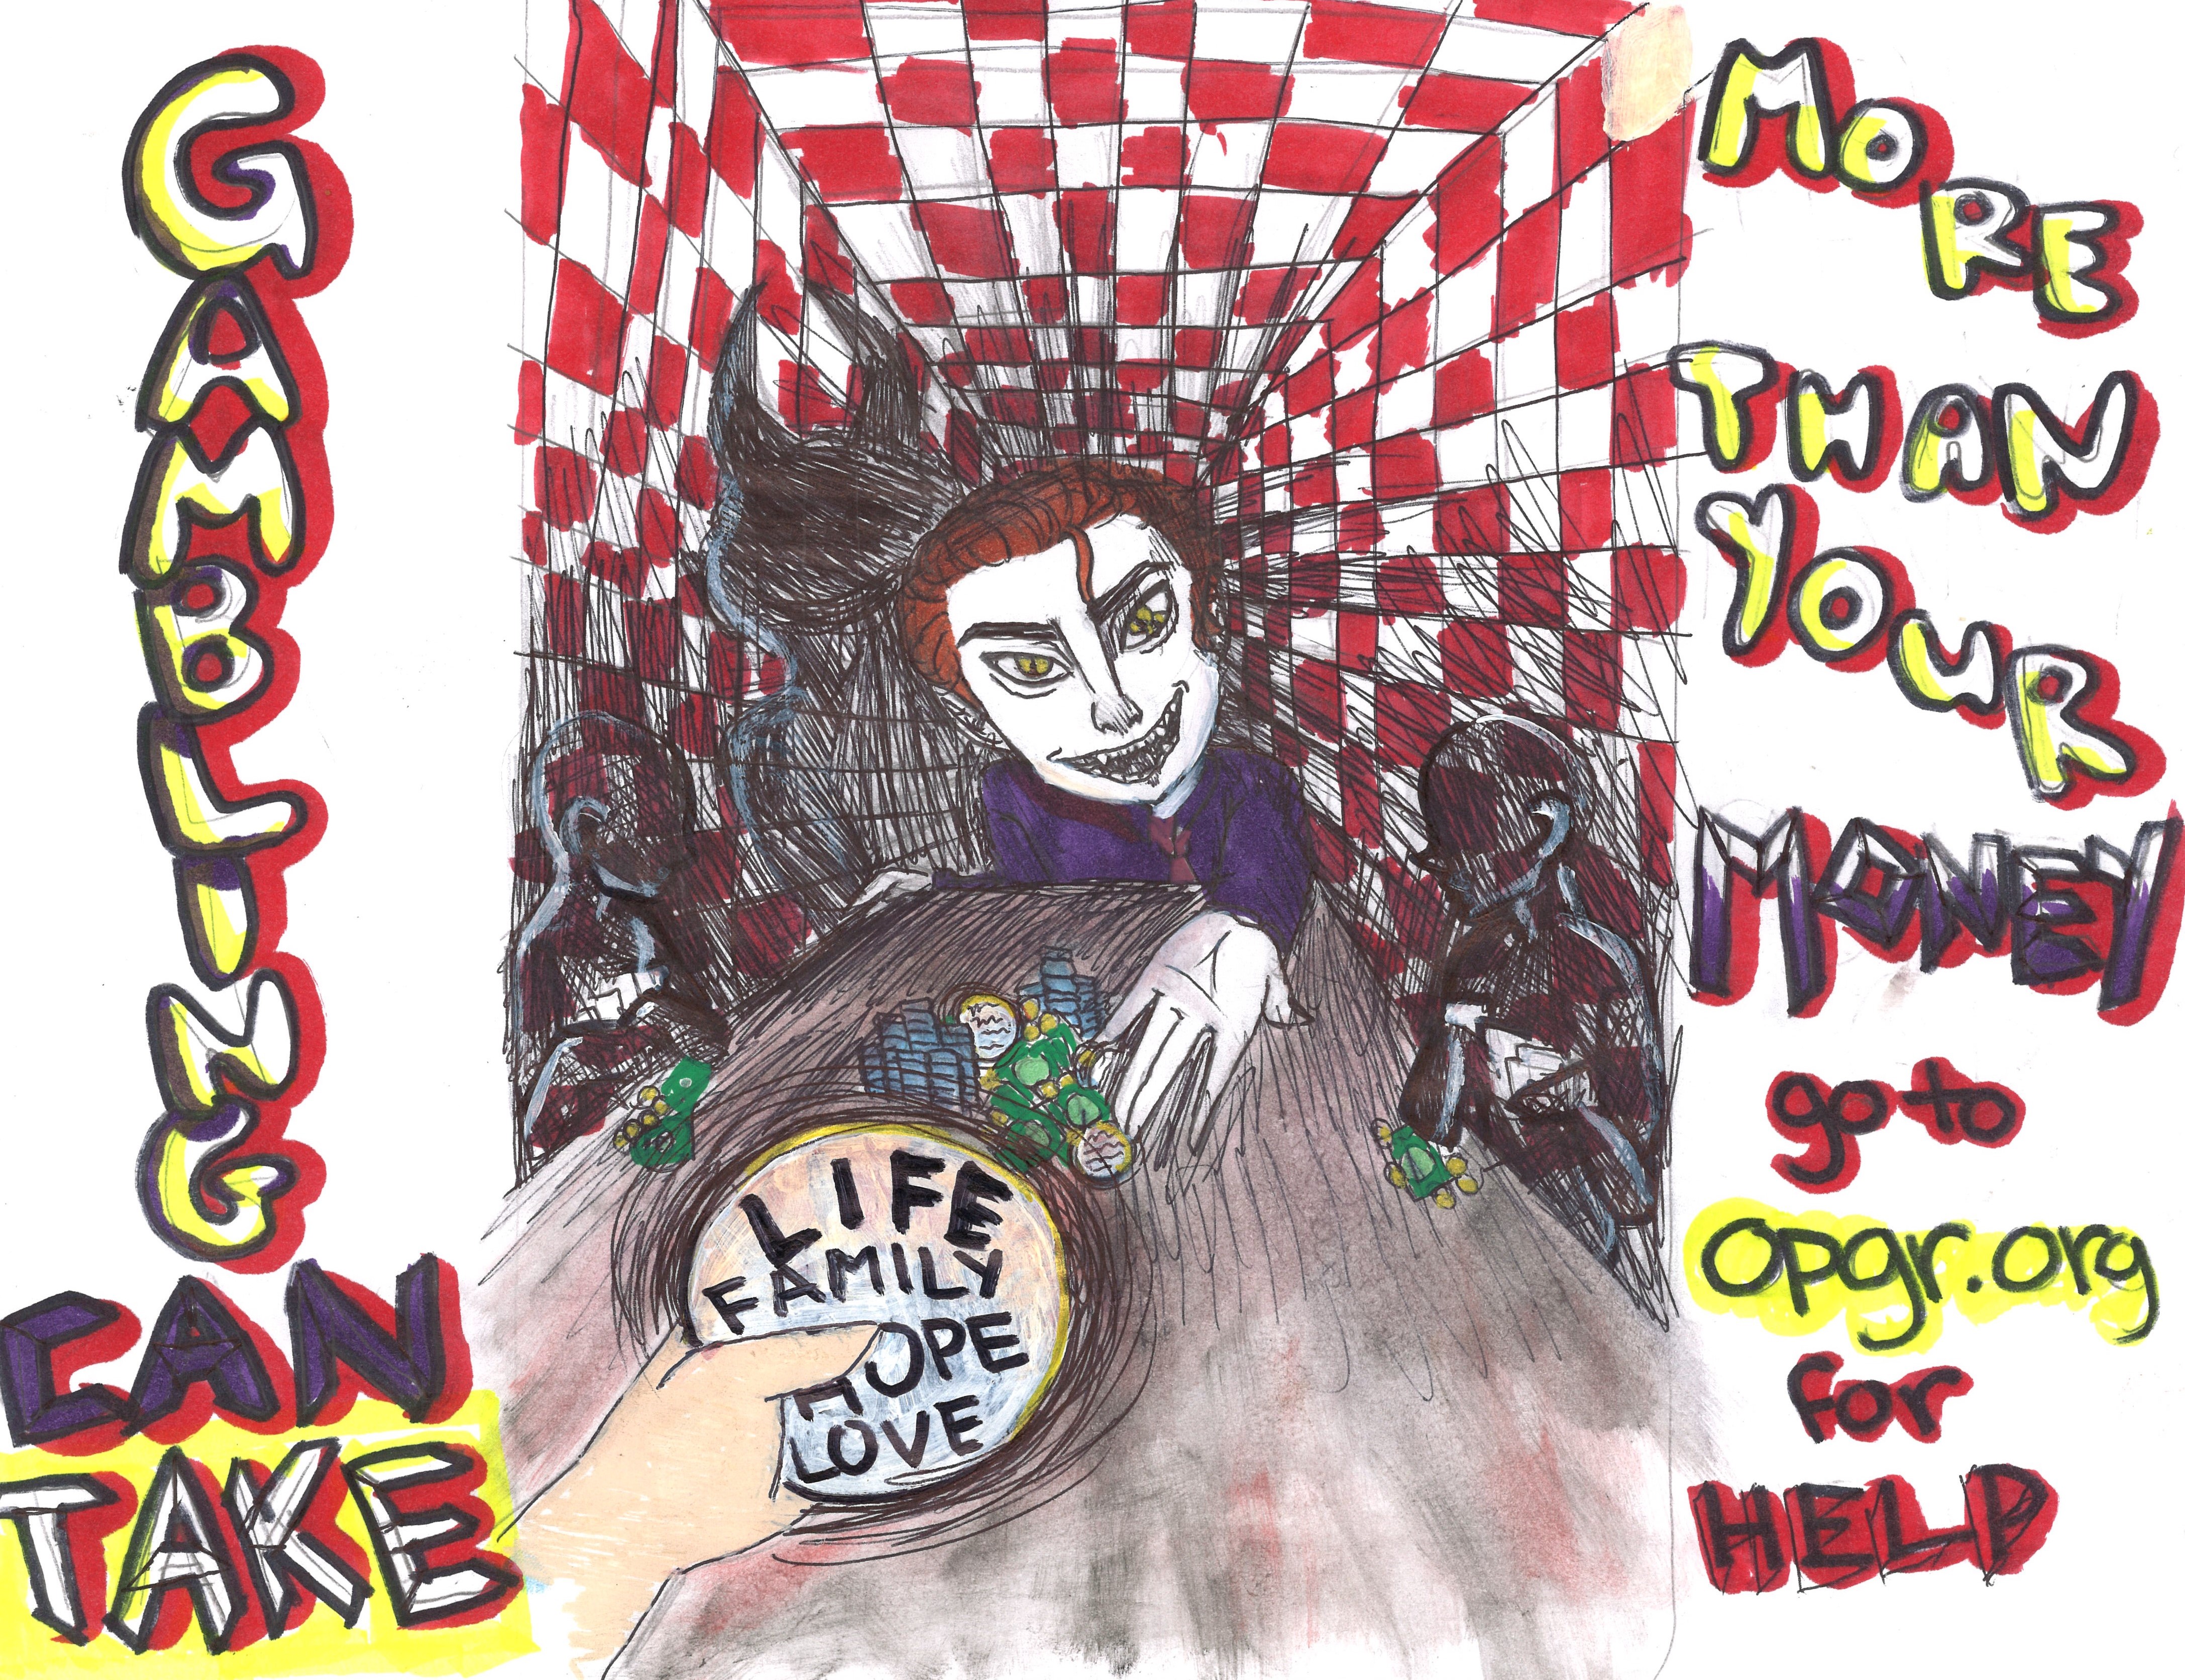 GAMBLING
CAN
TAKE
MORE
THAN
YOUR
MONEY
go to
opgr.org
for
HELP
LIFE
FAMILY
HOPE
LOVE